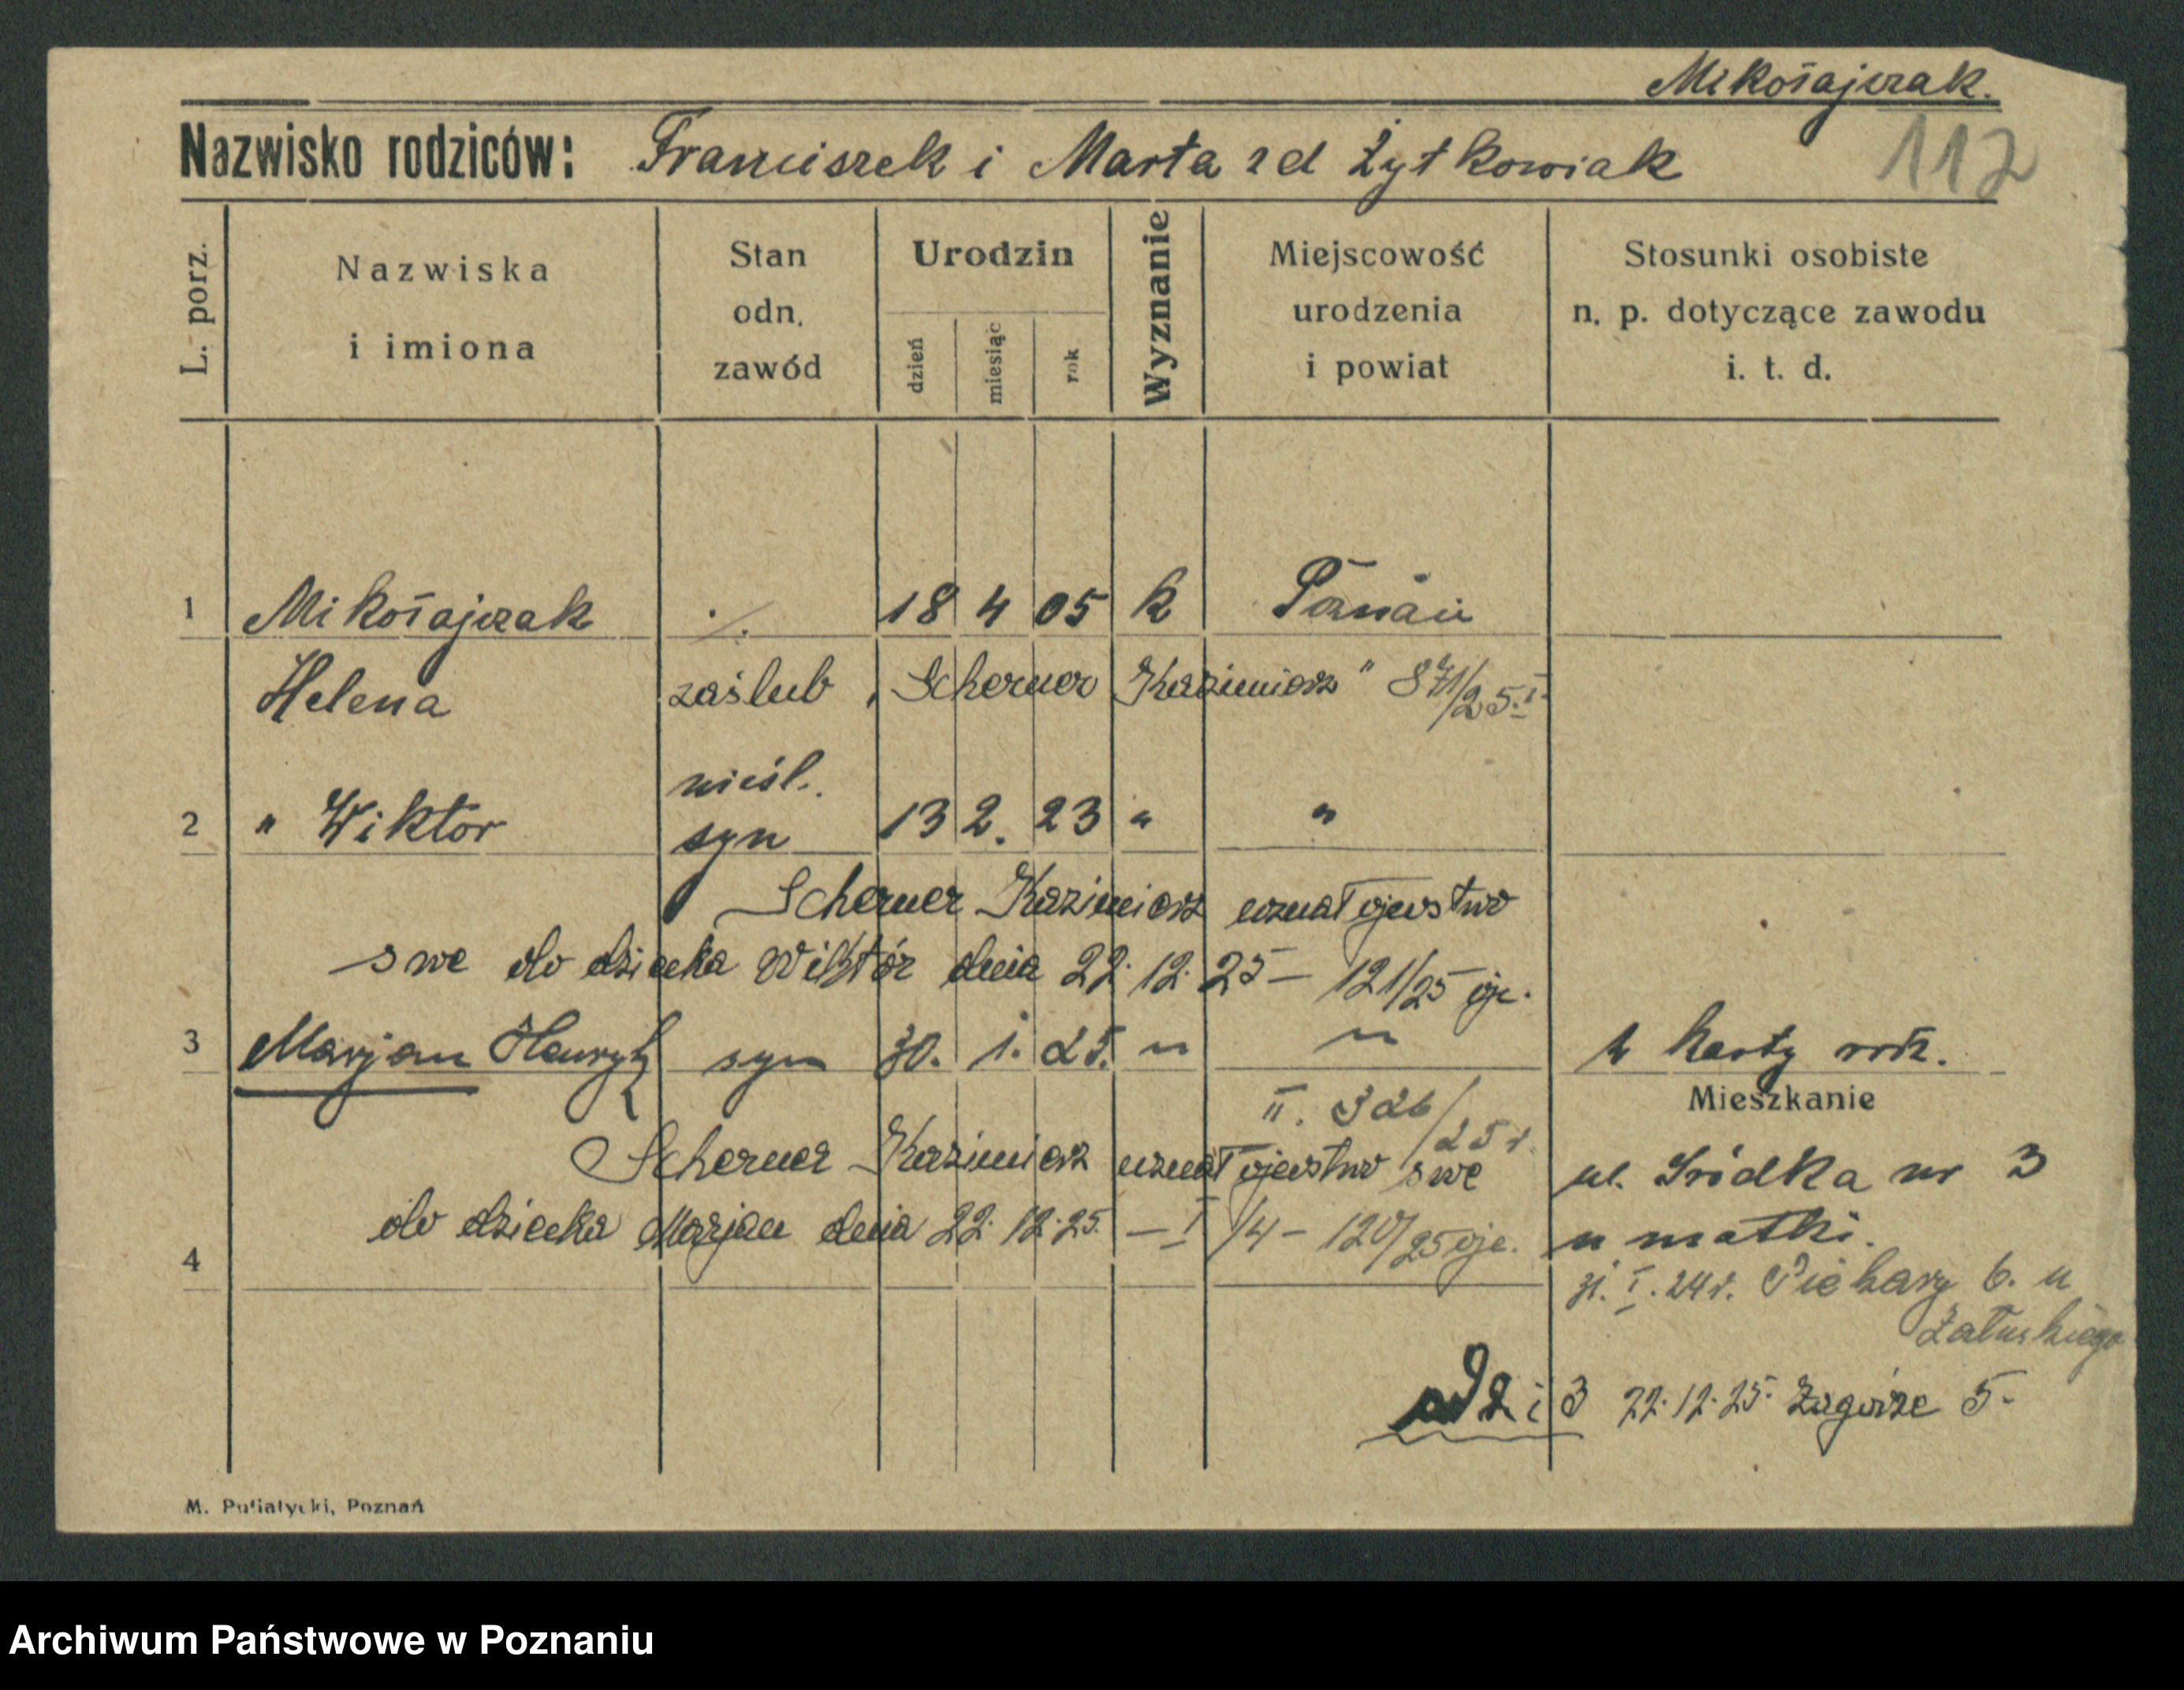 Mikołajczak.
Nazwisko rodziców: Franciszek i Marta zd Żytkowiak
112
L. porz.
Nazwiska
i imiona
Stan
odn.
zawód
Urodzin
dzień
miesiąc
rok
Wyznanie
Miejscowość
urodzenia
i powiat
Stosunki osobiste
n. p. dotyczące zawodu
i. t. d.
1 Mikołajczak ./. 18 4 05 k Poznań
Helena zaślub „Scherner Kazimierz" 871/25.I.
nieśl.
2 " Wiktor syn 13 2. 23 " "
Scherner Kazimierz uznał ojcostwo
swe do dziecka Wiktór dnia 22.12.25 – 121/25 ojc.
3 Marjan Henryk syn 30. 1. 25. " " karty
II. 326/25 r.
Mieszkanie
Scherner Kazimierz uznał ojcostwo swe
ul. Śródka nr 3
do dziecka Marjan dnia 22.12.25. – I/4 – 120/25 ojc.
u matki.
4
31. I. 24 r. Piekary 6. u
Załuskiego
ad 2 i 3 22.12.25. Zagórze 5.
M. Putiatycki, Poznań
Archiwum Państwowe w Poznaniu